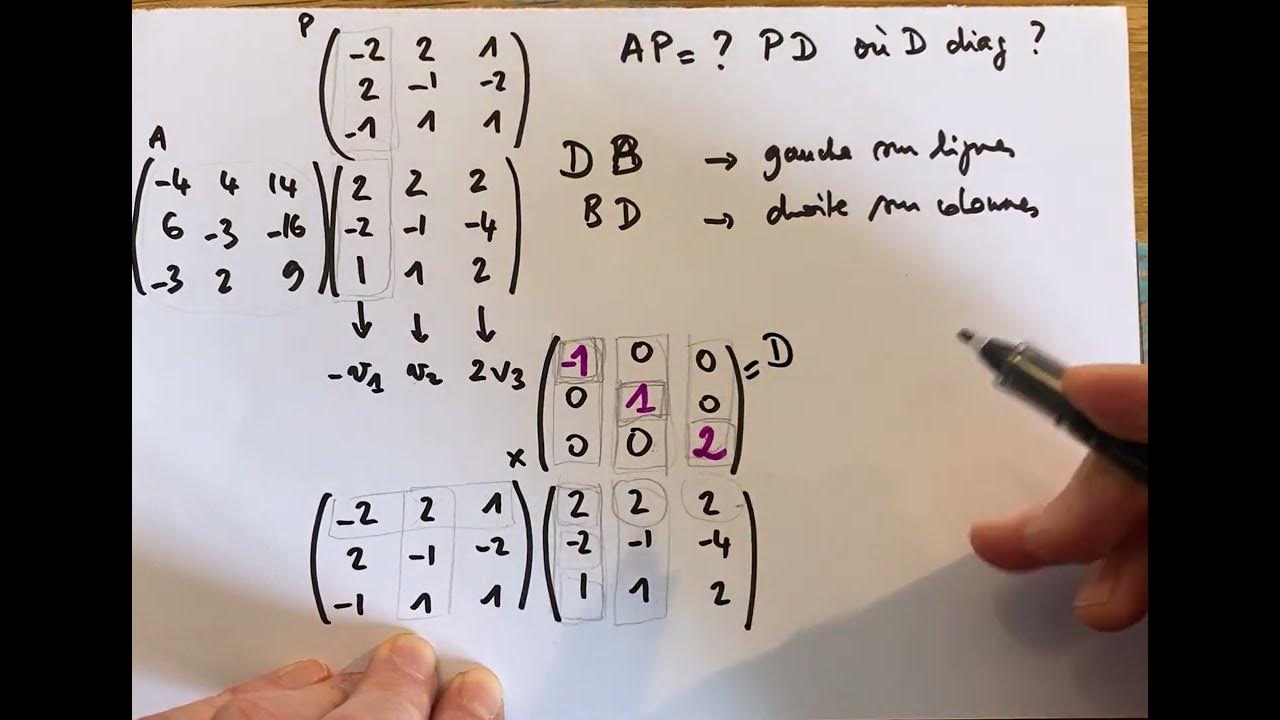 P
-2 2 1
2 -1 -2
-1 1 1
AP = ? PD où D diag ?
A
-4 4 14
6 -3 -16
-3 2 9
2 2 2
-2 -1 -4
1 1 2
D B → gauche sur lignes
B D → droite sur colonnes
↓ ↓ ↓
-v1 v2 2v3
-1 0 0
0 1 0
0 0 2
= D
x
-2 2 1
2 -1 -2
-1 1 1
2 2 2
-2 -1 -4
1 1 2